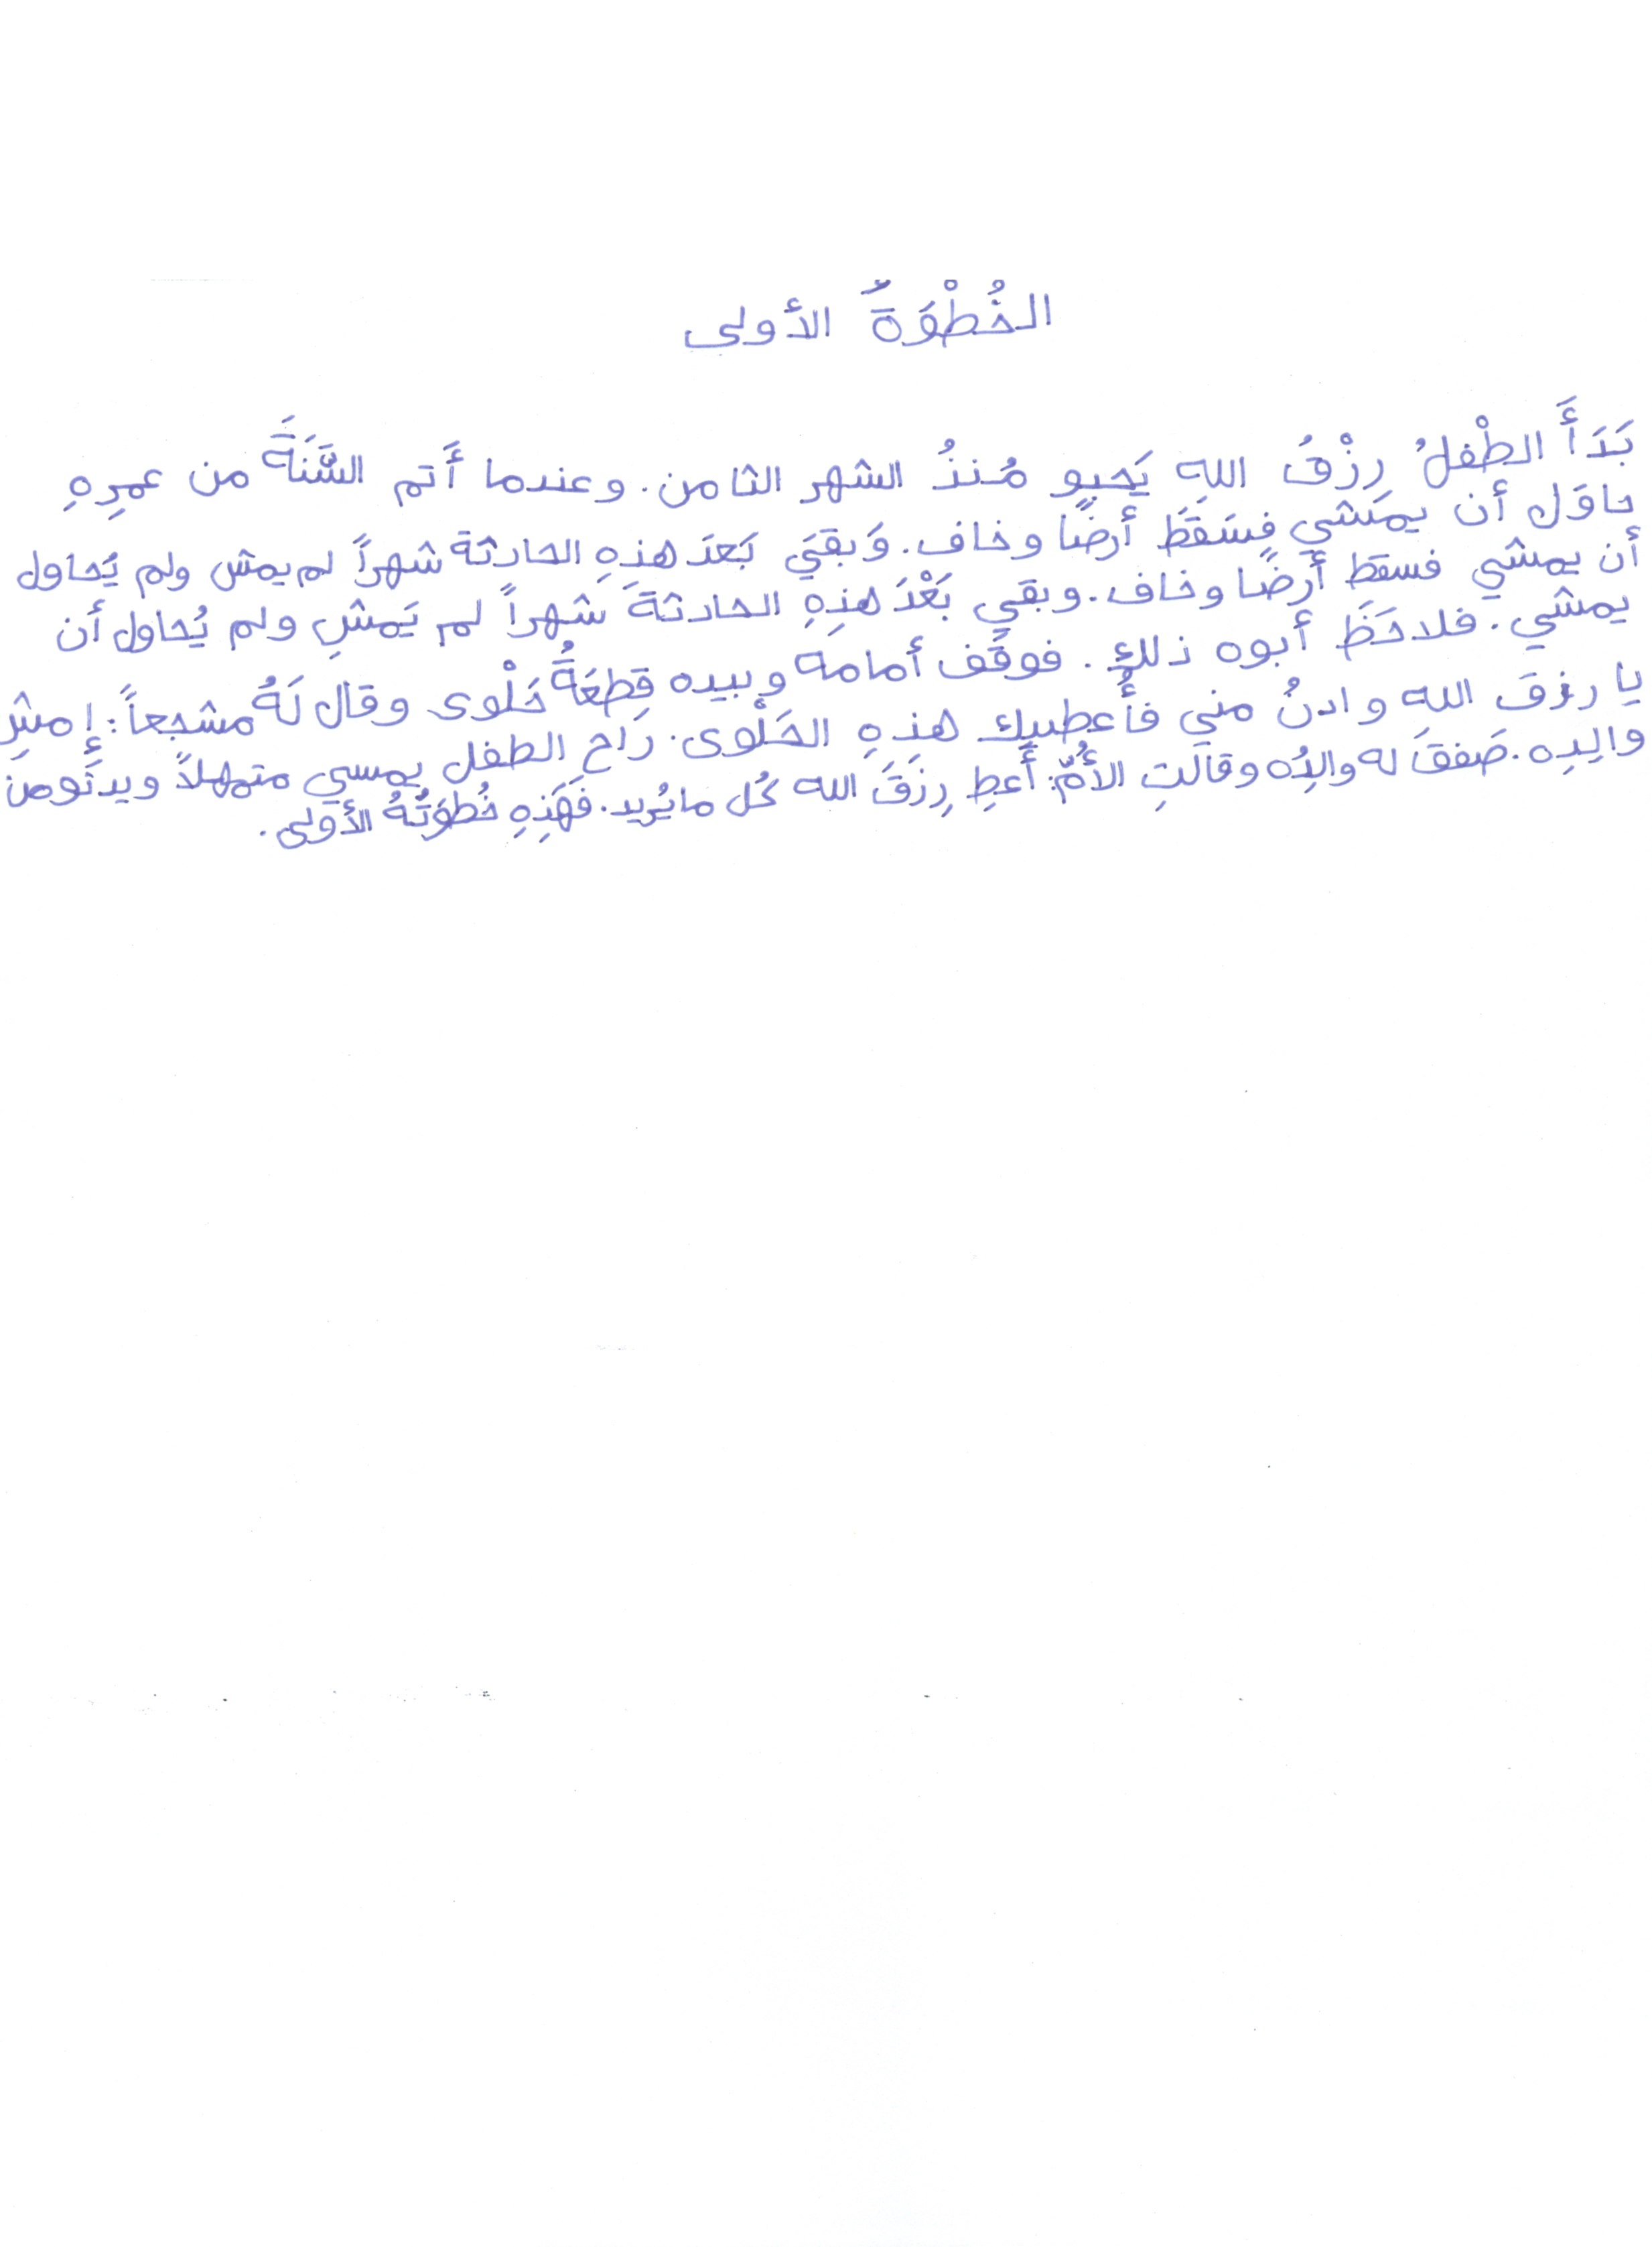 الخُطْوَةُ الأولى
بَدَأَ الطفْلُ رِزْقُ اللهِ يَحبو مُنذُ الشهر الثامن. وعندما أَتم السَّنَةَ من عمرِهِ
حاوَل أن يمَشي فسَقَطَ أرضًا وخاف. وَبقيَ بَعدَ هذهِ الحادثة شهراً لم يمش ولم يُحاول
أن يمشي فسقط أرضًا وخاف. وبقي بَعْدَ هذِهِ الحادثةَ شهراً لم يَمشِ ولم يُحاول أن
يمشي. فلاحَظَ أبوه ذلك. فوقَف أمامَه وبيده قِطعَةُ حَلْوى وقال لَهُ مشجعاً: إمشِ
يا رزقَ الله وادنُ مني فأُعطيك هذهِ الحَلْوى. رَاح الطفل يمسي متمهلاً ويدنَومنَ
والِدِه. صَفقَ له والدُه وقالَتِ الأُمُّ: أَعطِ رِزقَ الله كُل ما يُريد. فَهَذِهِ خُطوَتُهُ الأولى.